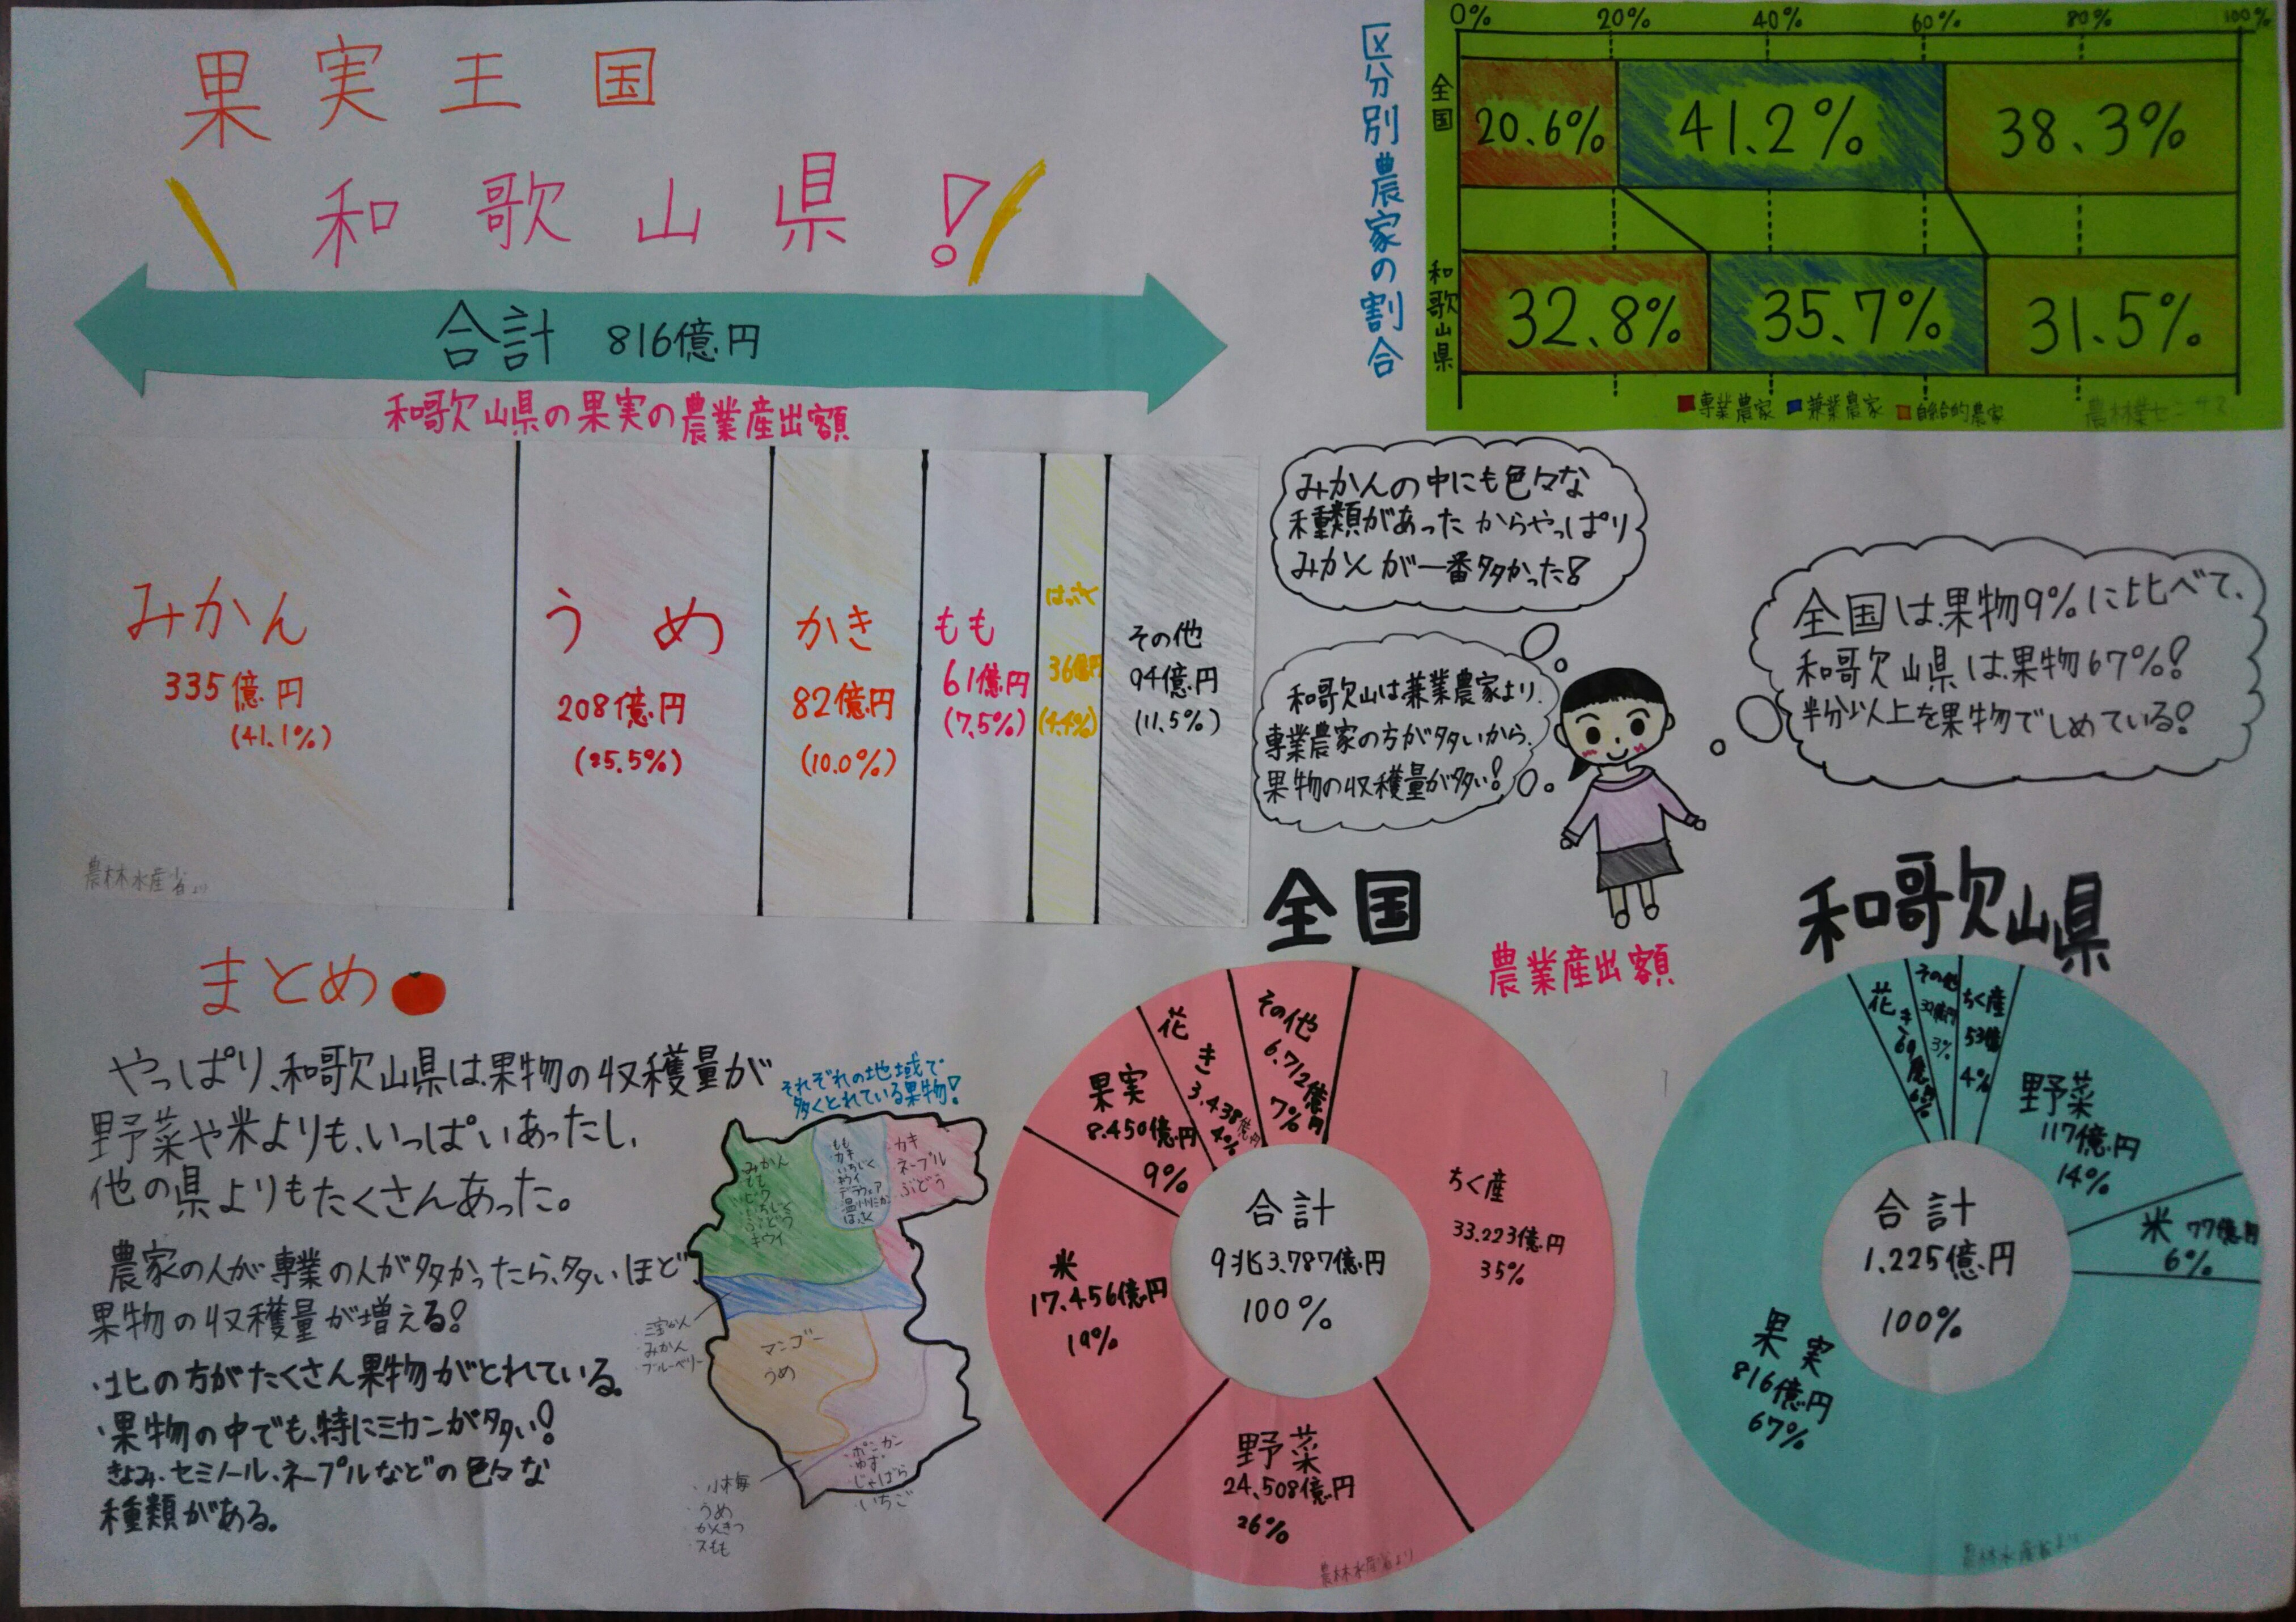 果実王国
和歌山県!
合計 816億円
和歌山県の果実の農業産出額
みかん
335億円
(41.1%)
うめ
208億円
(25.5%)
かき
82億円
(10.0%)
もも
61億円
(7.5%)
はっさく
36億円
(4.4%)
その他
94億円
(11.5%)
農林水産省より
区分別農家の割合
0% 20% 40% 60% 80% 100%
全国
20.6% 41.2% 38.3%
和歌山県
32.8% 35.7% 31.5%
専業農家 兼業農家 自給的農家
みかんの中にも色々な
種類があったからやっぱり
みかんが一番多かった!
和歌山は兼業農家より、
専業農家の方が多いから、
果物の収穫量が多い!
全国は果物9%に比べて、
和歌山県は果物67%!
半分以上を果物でしめている!
まとめ
やっぱり、和歌山県は果物の収穫量が
野菜や米よりも、いっぱいあったし、
他の県よりもたくさんあった。
農家の人が専業の人が多かったら、多いほど
果物の収穫量が増える!
・北の方がたくさん果物がとれている。
・果物の中でも、特にミカンが多い!
きよみ・セミノール、ネーブルなどの色々な
種類がある。
それぞれの地域で
多くとれている果物!
みかん
もも
ビワ
いちじく
ぶどう
キウイ
もも
カキ
いちじく
キウイ
デラウェア
はっさく
カキ
ネーブル
ぶどう
・三宝かん
・みかん
・ブルーベリー
マンゴー
うめ
・小梅
・うめ
・かんきつ
・スモモ
・ポンカン
・ゆず
・じゃばら
・いちご
農業産出額
全国
合計
9兆3.787億円
100%
ちく産
33.223億円
35%
野菜
24.508億円
26%
米
17.456億円
19%
果実
8.450億円
9%
花き
3.438億円
4%
その他
6.712億円
7%
農林水産省より
和歌山県
合計
1.225億円
100%
ちく産
53億
4%
野菜
117億円
14%
米 77億円
6%
果実
816億円
67%
花き
その他
3%
農林水産省より